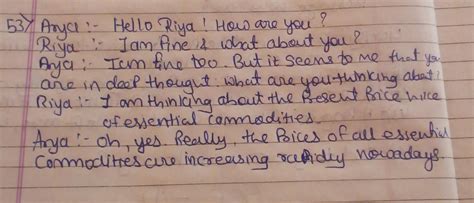 53) Arya :- Hello Riya ! How are you ?
Riya :- I am fine & what about you ?
Arya :- I am fine too. But it seams to me that you
are in deep thought. what are you thinking about ?
Riya :- I am thinking about the Present Price hice
of essential commodities.
Arya :- oh, yes. Really, the Prices of all essential
Commodities are increasing rapidly nowadays.